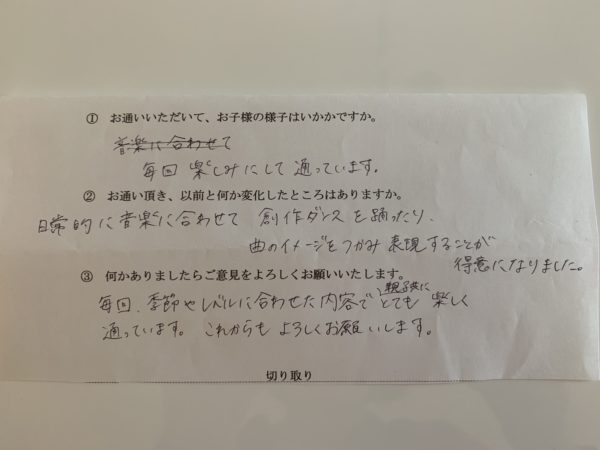 ① お通いいただいて、お子様の様子はいかがですか。
音楽に合わせて
毎回 楽しみにして 通っています。
② お通い頂き、以前と何か変化したところはありますか。
日常的に音楽に合わせて 創作ダンスを踊ったり、
曲のイメージをつかみ 表現することが
得意になりました。
③ 何かありましたらご意見をよろしくお願いいたします。
親子共に
毎回、季節やレベルに合わせた内容で とても 楽しく
通っています。 これからも よろしくお願いします。
切り取り